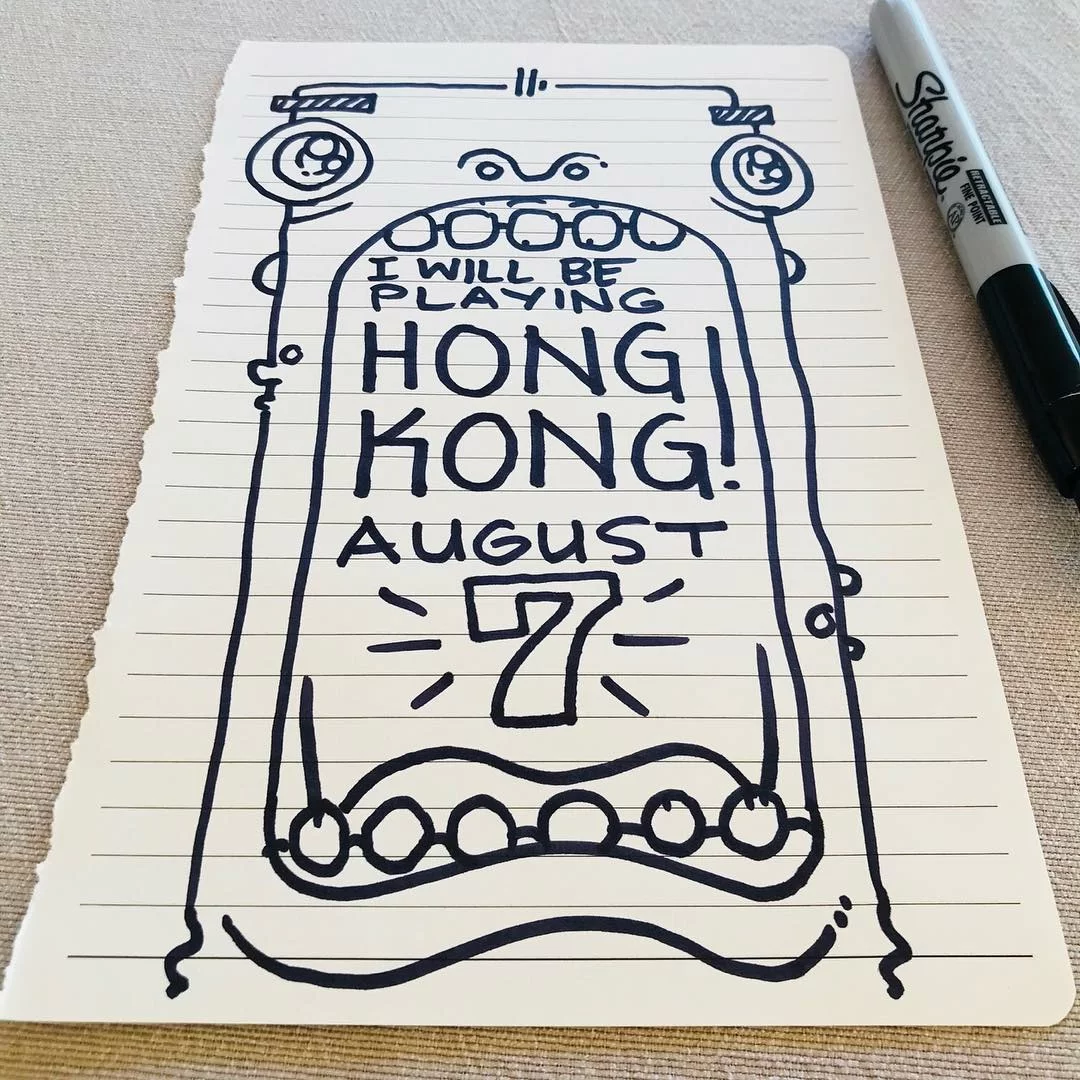 I WILL BE
PLAYING
HONG
KONG!
AUGUST
7
Sharpie
RETRACTABLE
FINE POINT